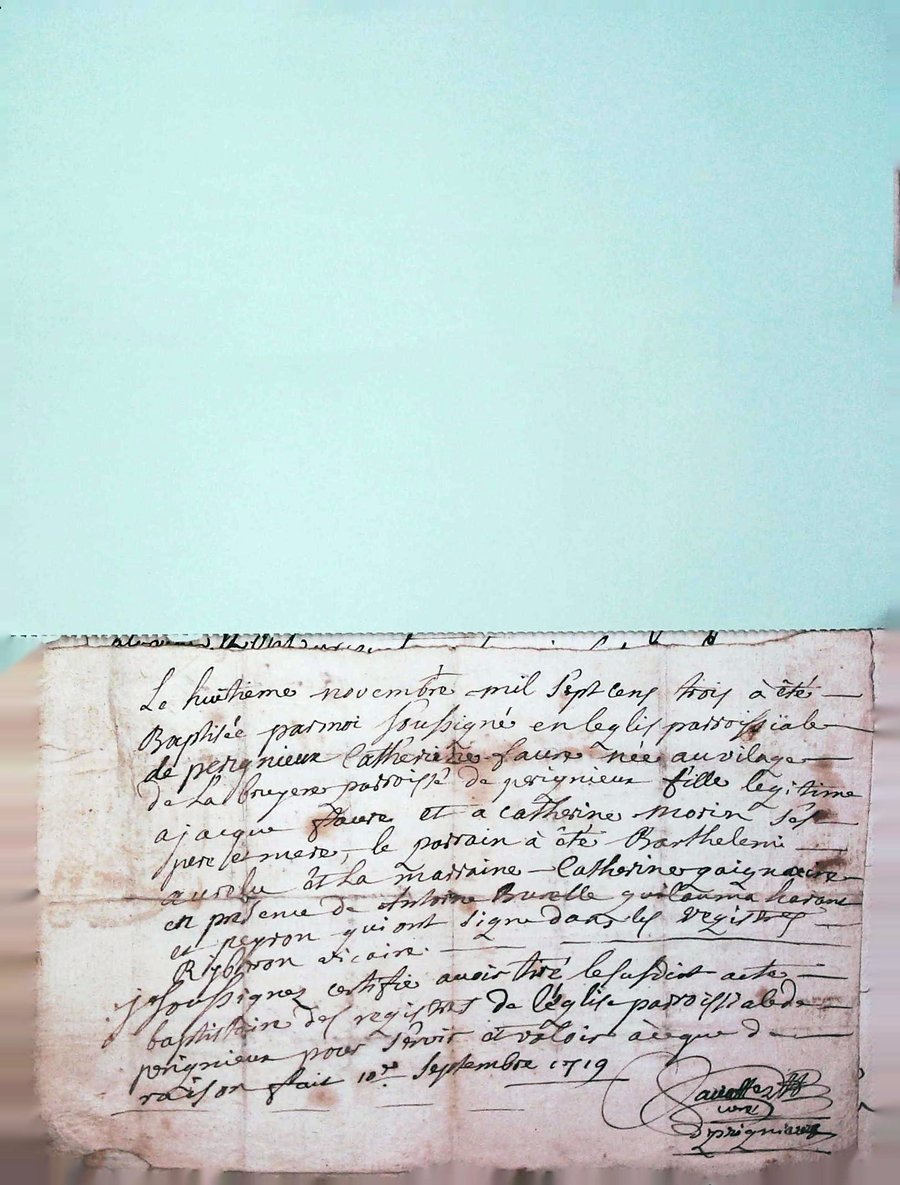 Le huitieme novembre mil sept cens trois à été
Baptisée parmoi soussigné en leglis parroissiale
de perignieux Catherine faure née au vilage
de La bruyere parroisse de perignieux fille legitime
a jacque faure et a catherine morin ses
pere et mere, le parrain à été Barthelemi
et La marraine Catherine gaignaire
en presence de Antoine Buselle
et peyron qui ont signe dans les registres
vicaire
je soussignez certifie avoir tiré le susdict acte
baptistaire des registres de l'église parroissiale de
perignieux pour servir et valoir àceque de
raison fait 10e Septembre 1719
curé